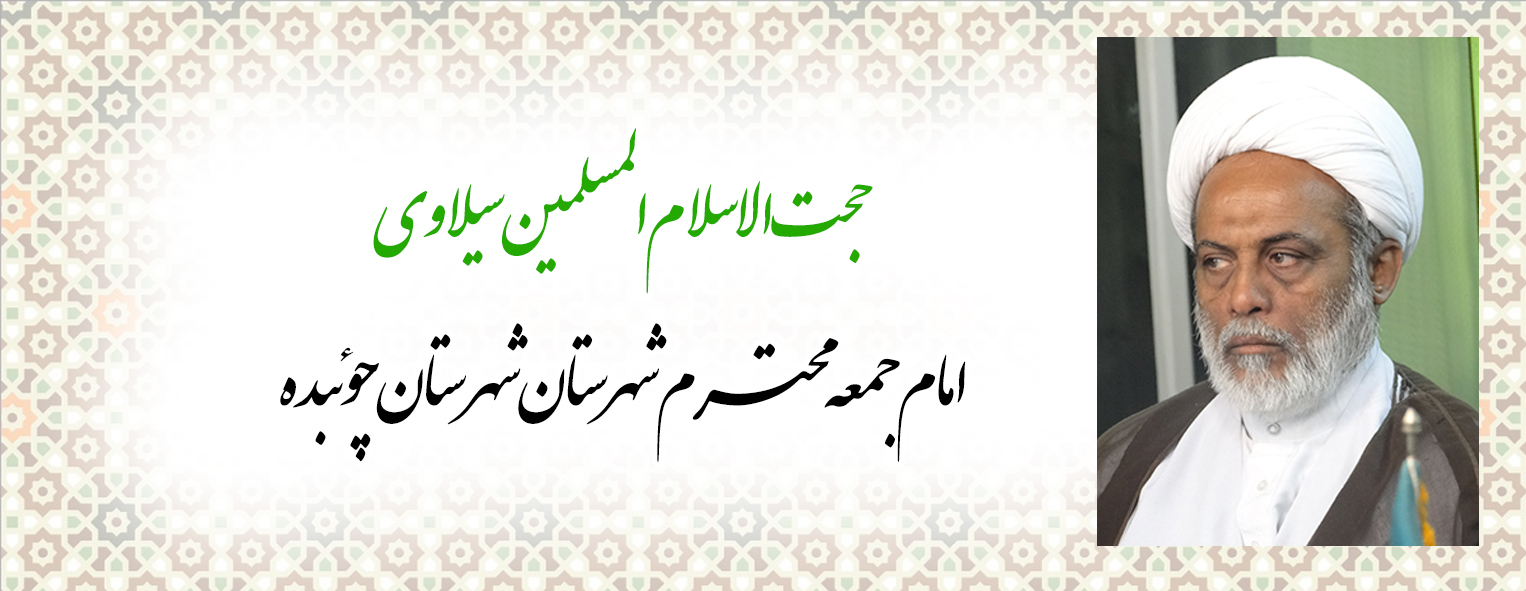 حجت‌الاسلام المسلمین سیلاوی
امام جمعه محترم شهرستان شهرستان چوئبده